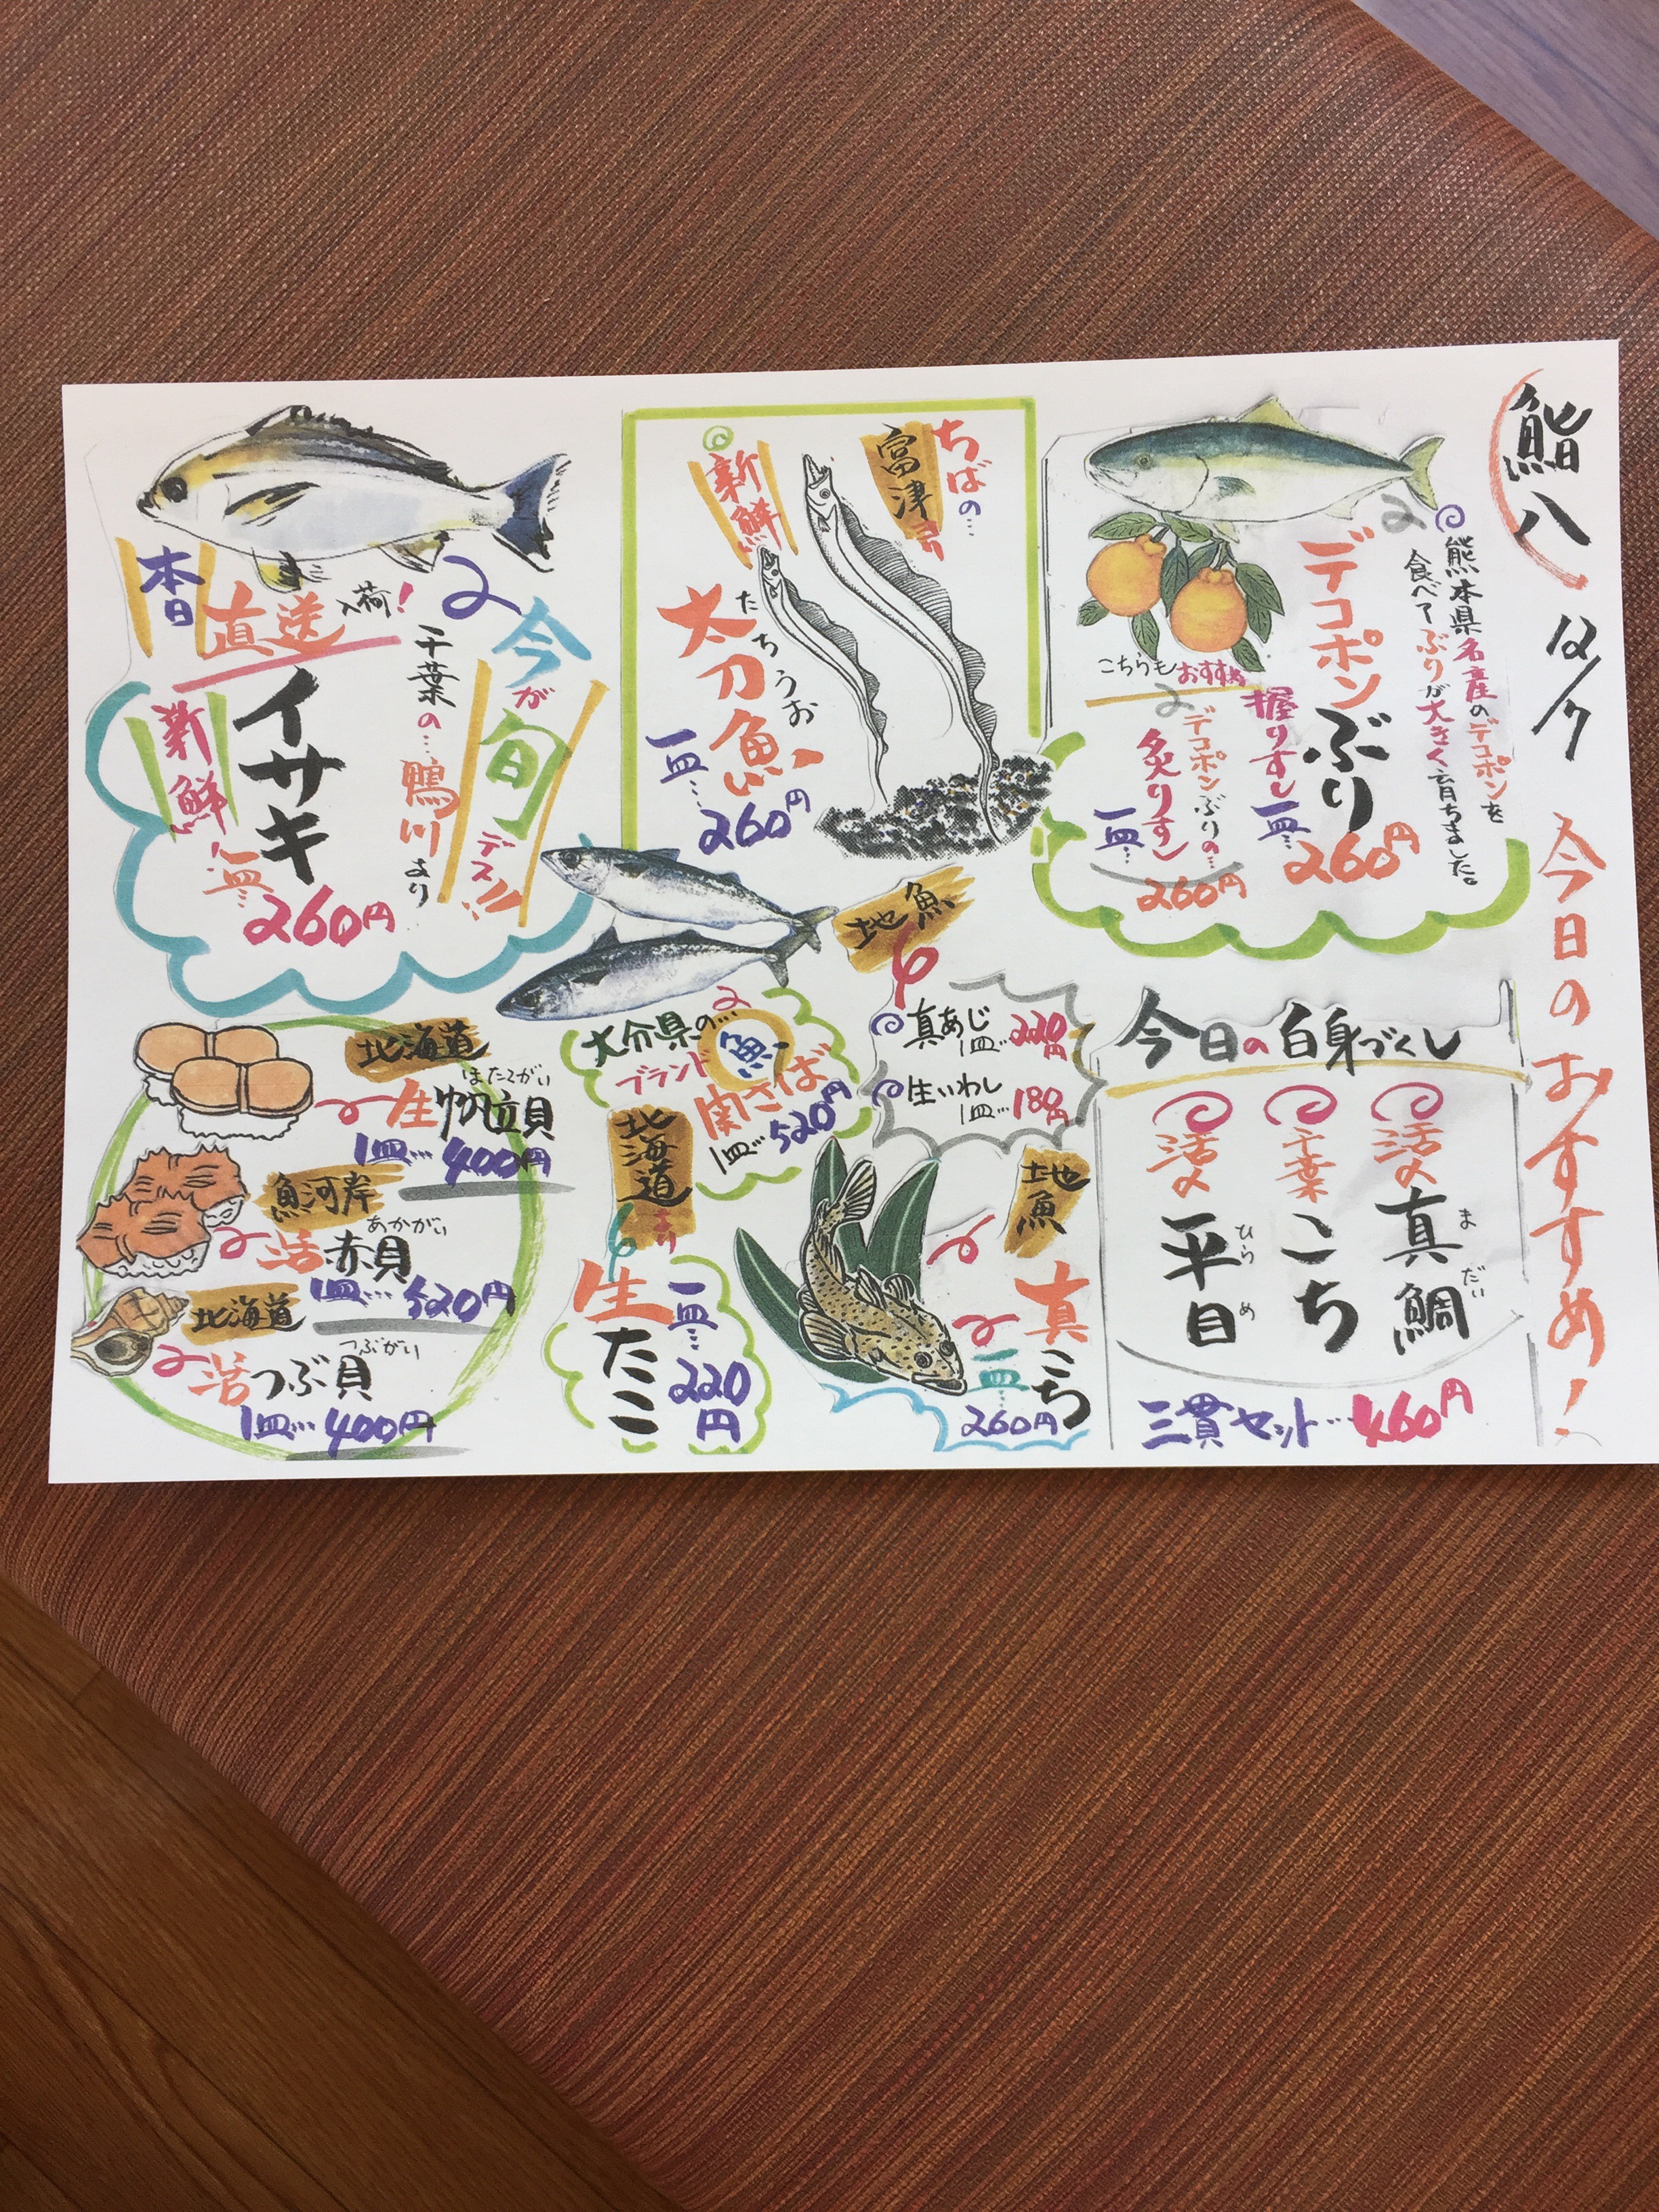 鮨八
今日のおすすめ!
熊本県名産のデコポンを
食べてぶりが大きく育ちました。
デコポンぶり
握りすし
一皿…260円
こちらもおすすめ
デコポンぶりの…
炙りすし
一皿…260円
ちばの…
富津
新鮮
太刀魚
たちうお
一皿…
260円
今が旬デス!!
千葉の…鴨川より
本日
直送入荷!
イサキ
新鮮!
一皿…
260円
地魚
真あじ
1皿…220円
生いわし
1皿…180円
大分県の…
ブランド魚
関さば
1皿…520円
今日の白身づくし
活〆真鯛
まだい
千葉こち
活〆平目
ひらめ
三貫セット…460円
地魚
真こち
一皿…
260円
北海道より
生たこ
一皿…
220円
北海道
ほたてがい
生帆立貝
1皿…400円
魚河岸
あかがい
活赤貝
1皿…520円
北海道
つぶがい
活つぶ貝
1皿…400円